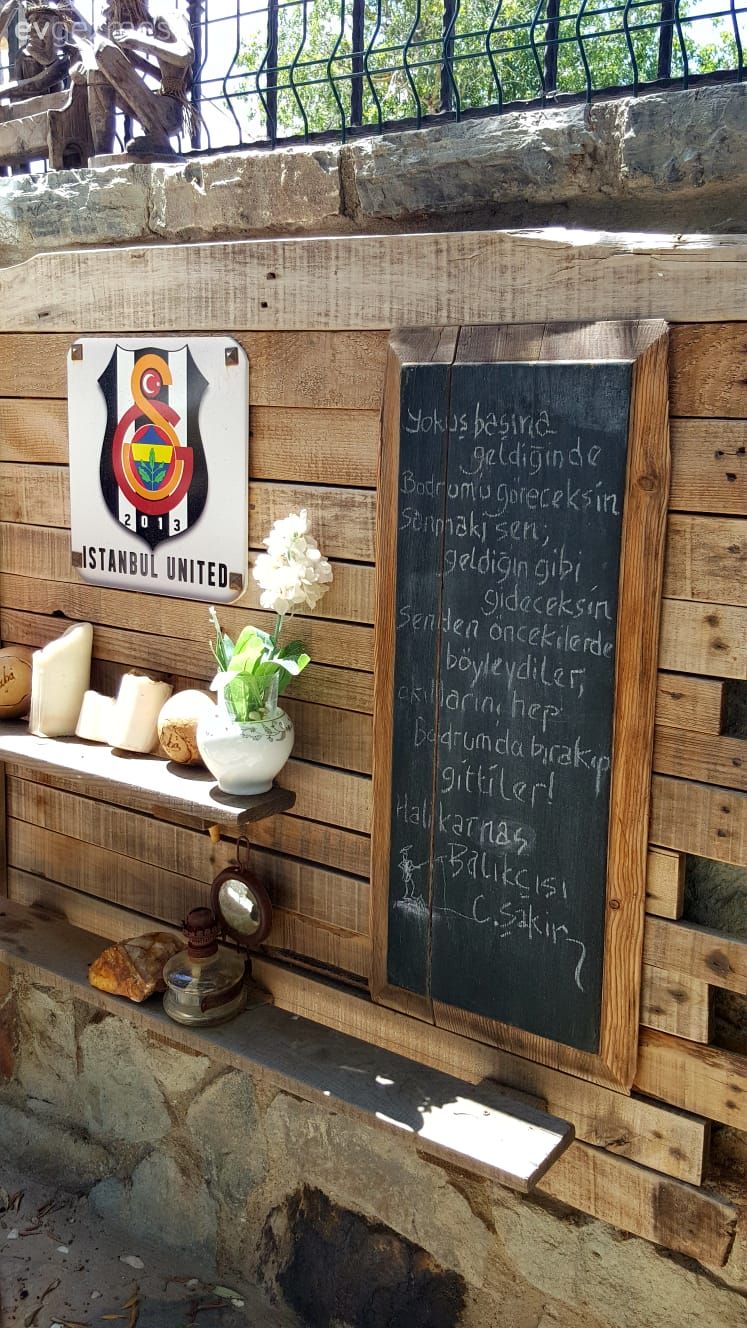 evgezmesi
2013
ISTANBUL UNITED
Yokuş başına
geldiğinde
Bodrumu göreceksin
Sanmaki sen;
geldiğin gibi
gideceksin
Senden öncekilerde
böyleydiler,
akıllarını hep
Bodrumda bırakıp
gittiler!
Halikarnas
Balıkçısı
C.Şakir